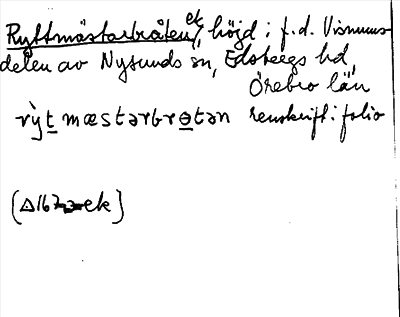 Ryttmästarbråten, ek höjd i f.d. Visnums-
delen av Nysunds sn, Edsbergs hd,
Örebro län
rỳt mæstərbrɵtən renskrift i folio
(Δ167 ek)